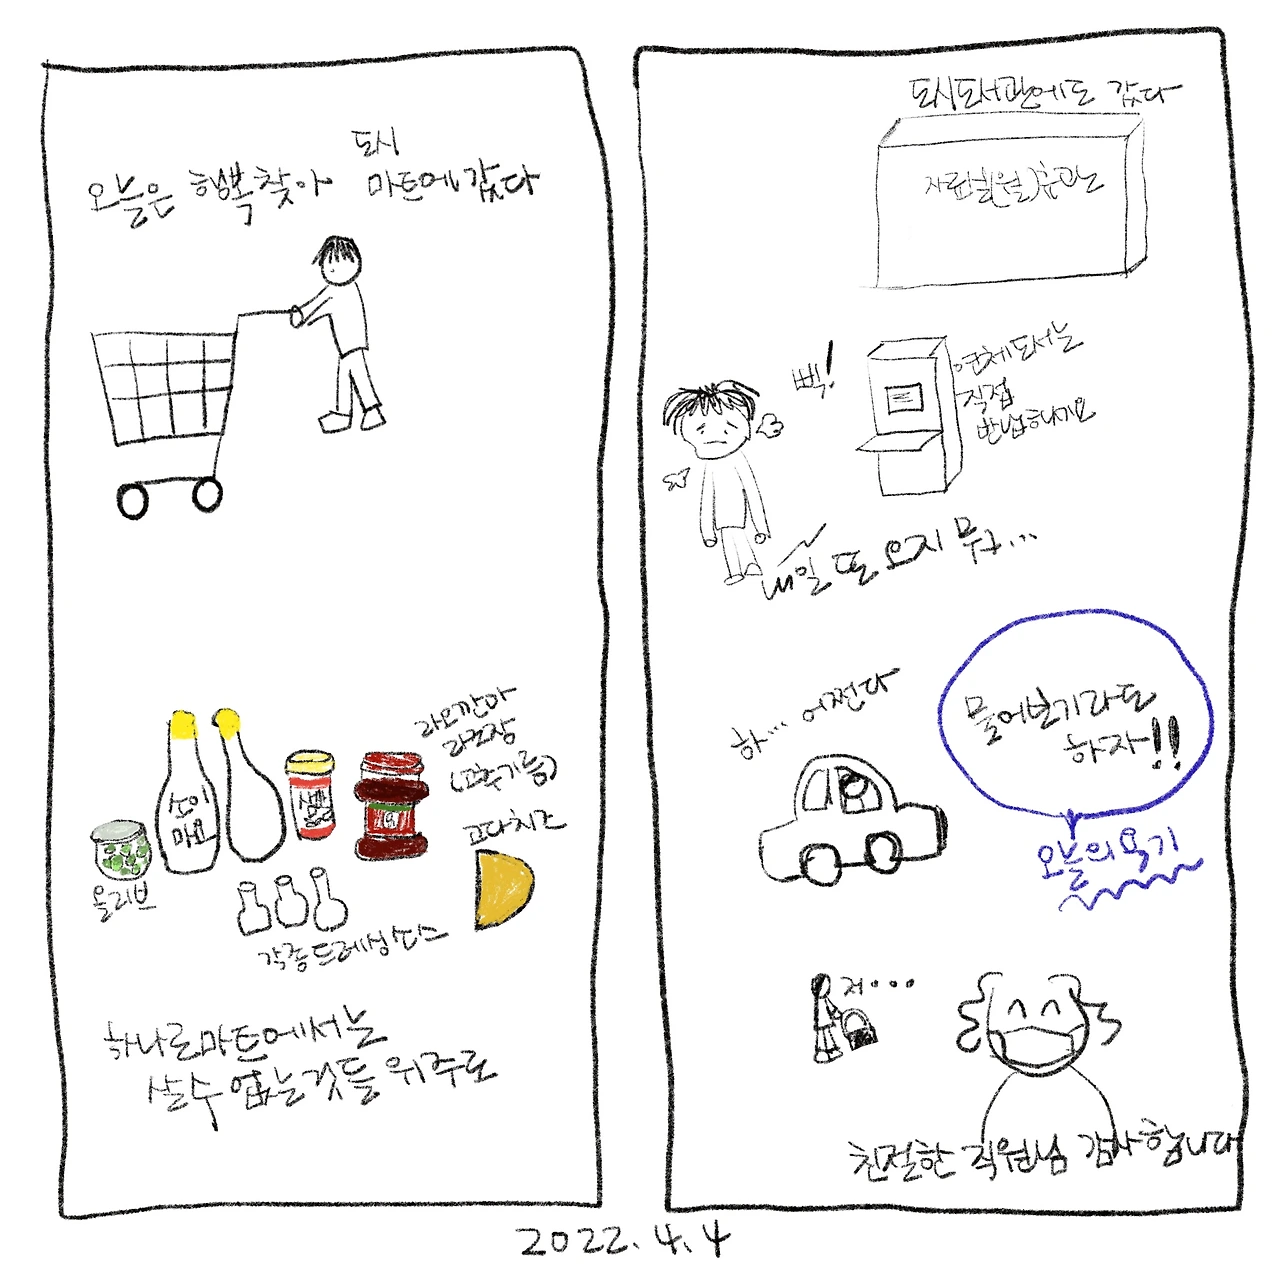 도시
오늘은 행복찾아 마트에 갔다
소이
마요
쌈장
올리브
각종드레싱소스
라오깐마
라조장
(고추기름)
고다치즈
하나로마트에서는
살수 없는것들 위주로
도시도서관에도 갔다
자료실(월)휴관
삑!
연체도서는
직접
반납하세요
내일 또 오지 뭐...
하... 어쩐다
물어보기라도
하자!!
오늘의 용기
저...
친절한 직원님 감사합니다
2022.4.4